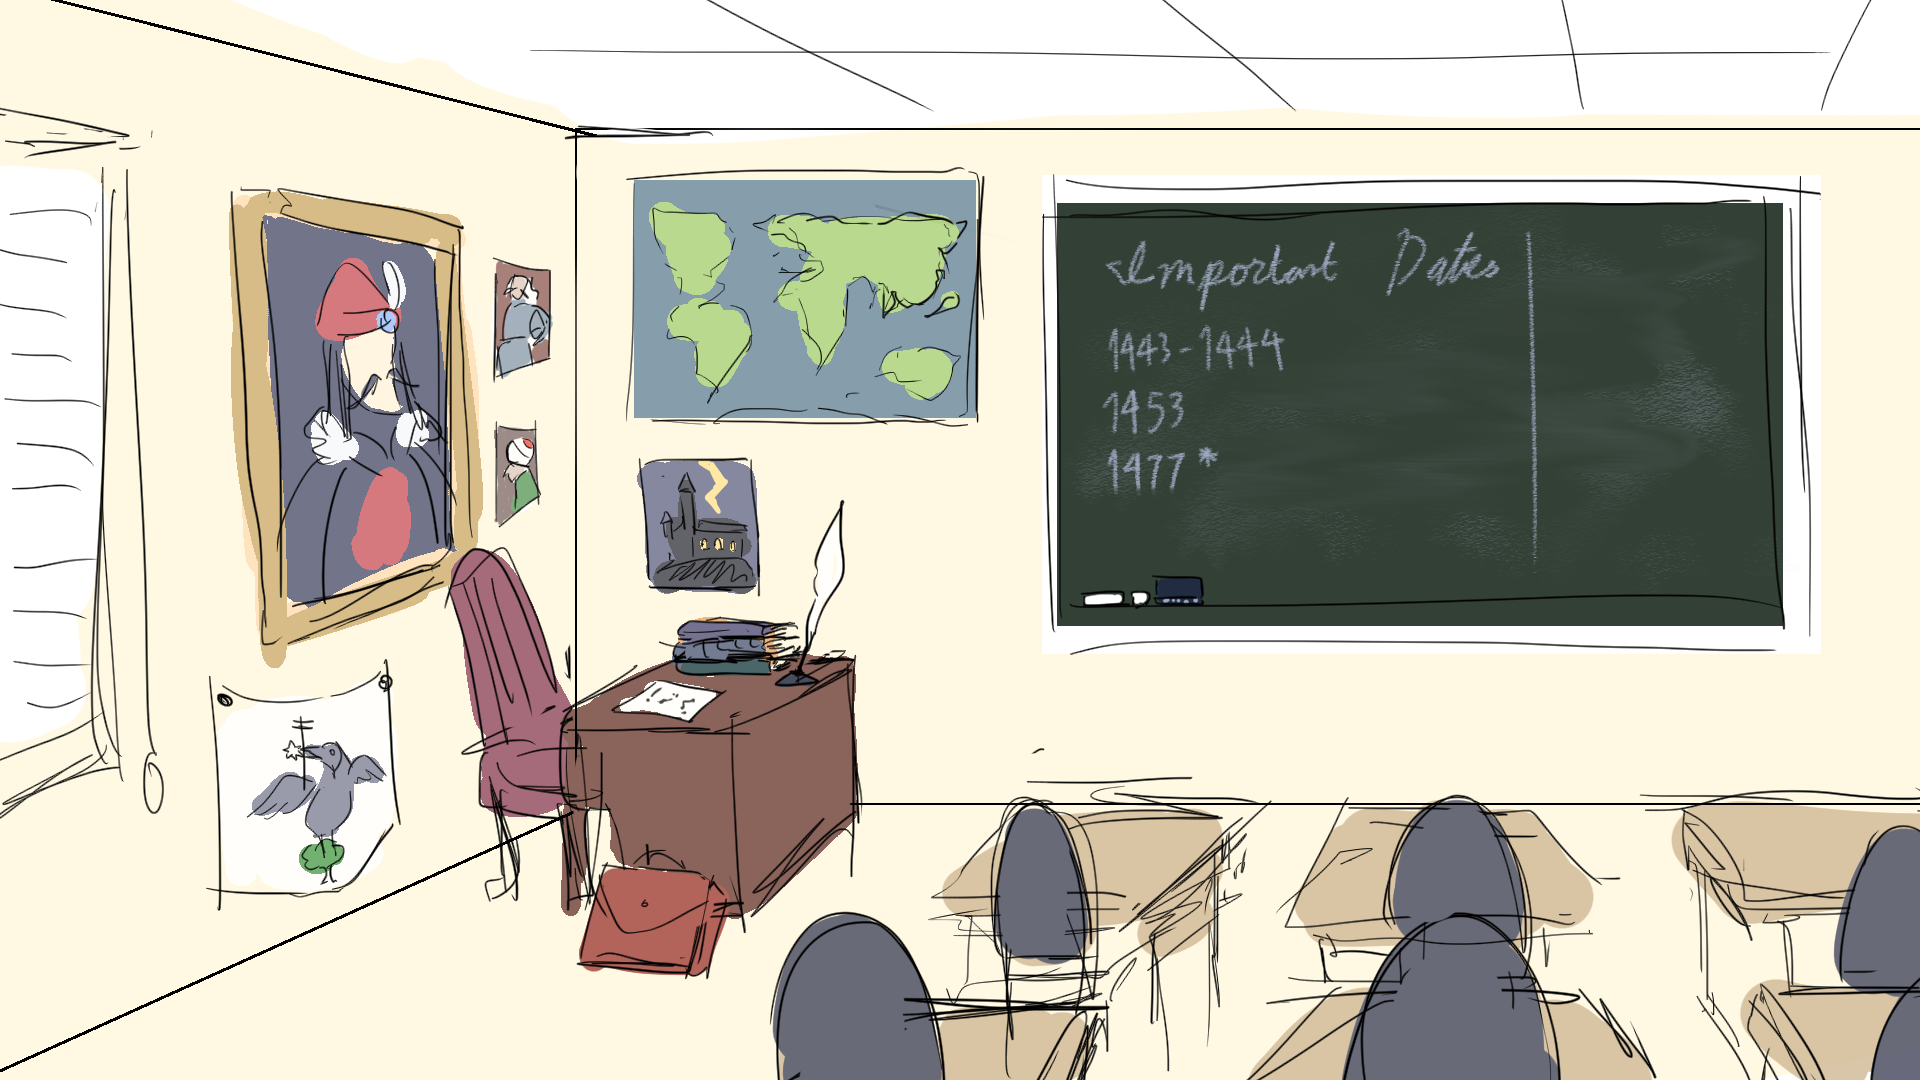 Important Dates
1443-1444
1453
1477*